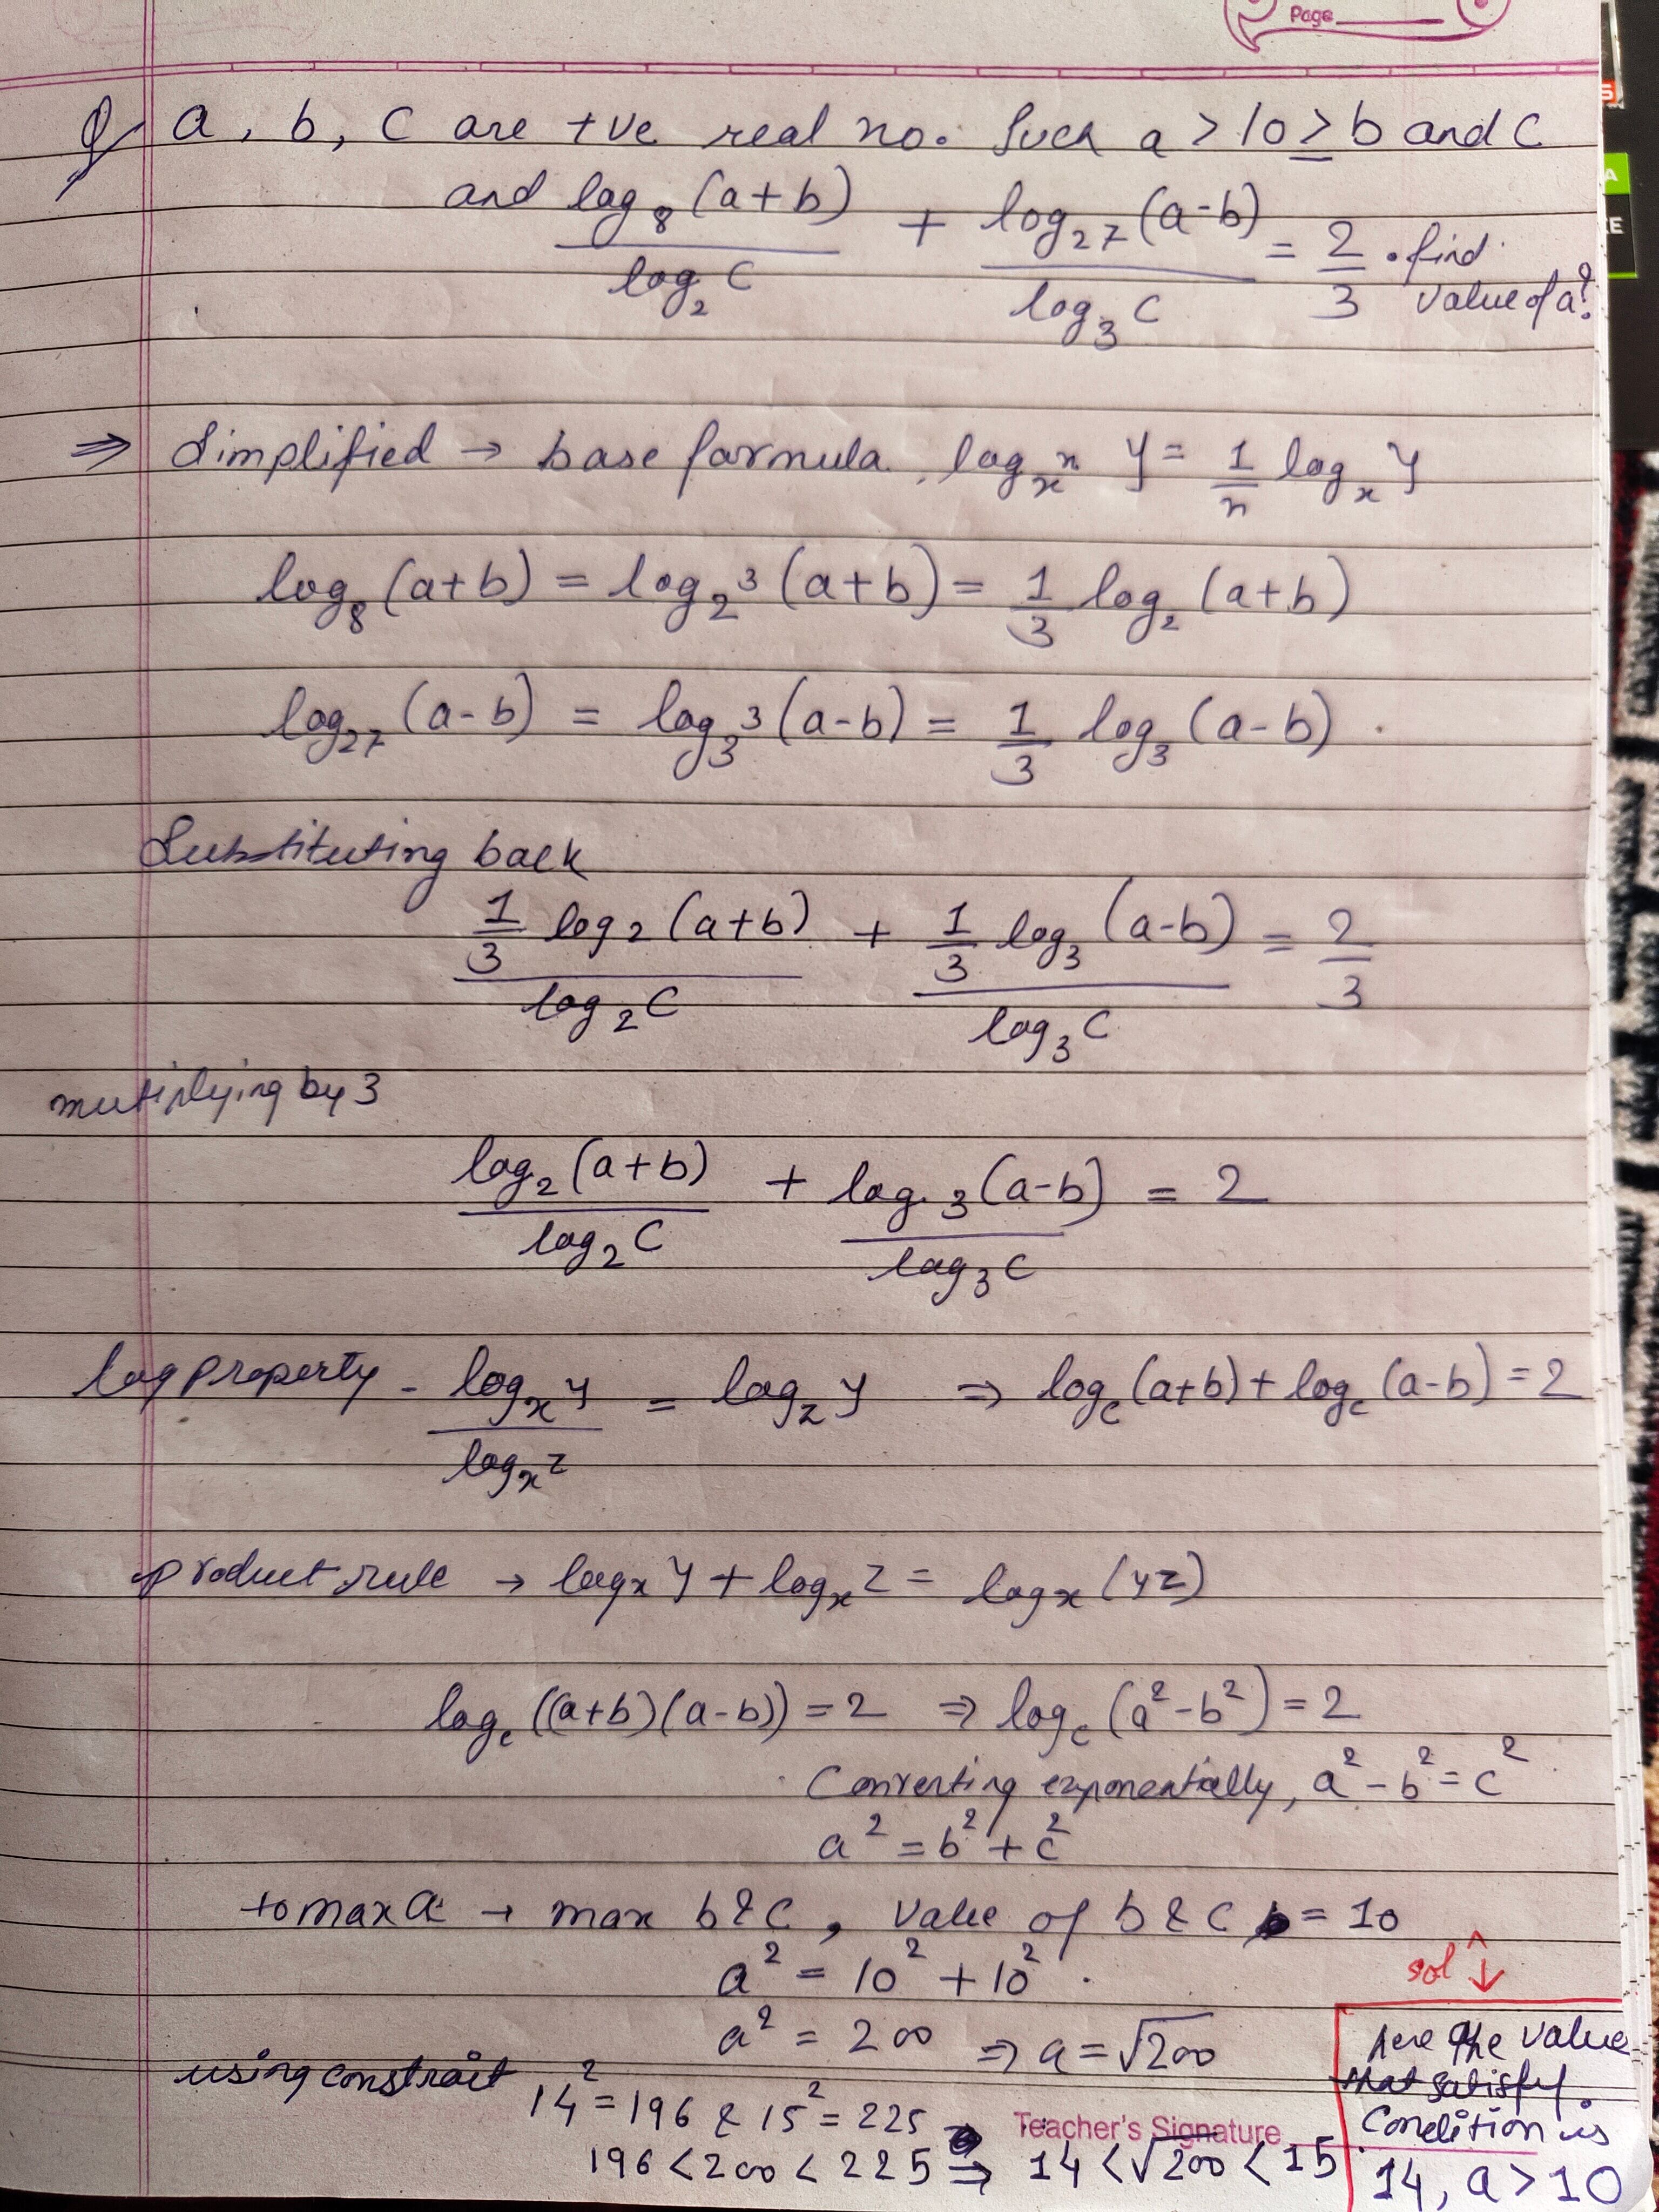 Page
Q a, b, c are +ve real no. Such a > 10 ≥ b and c
and log₈(a+b)/log₂c + log₂₇(a-b)/log₃c = 2/3 . find value of a?
⇒ Simplified → base formula, log_xⁿ y = 1/n log_x y
log₈(a+b) = log₂³(a+b) = 1/3 log₂(a+b)
log₂₇(a-b) = log₃³(a-b) = 1/3 log₃(a-b) .
Substituting back
1/3 log₂(a+b)/log₂c + 1/3 log₃(a-b)/log₃c = 2/3
multiplying by 3
log₂(a+b)/log₂c + log₃(a-b)/log₃c = 2
log property - log_x y/log_x z = log_z y ⇒ log_c(a+b) + log_c(a-b) = 2
product rule → log_x y + log_x z = log_x(yz)
log_c((a+b)(a-b)) = 2 ⇒ log_c(a²-b²) = 2
Converting exponentially, a² - b² = c²
a² = b² + c²
to max a → max b & c, value of b & c = 10
a² = 10² + 10² .
a² = 200 ⇒ a = √200
using constrait 14² = 196 & 15² = 225
Teacher's Signature
196 < 200 < 225 ⇒ 14 < √200 < 15
sol
here the value
that satisfy
Condition is
14, a > 10